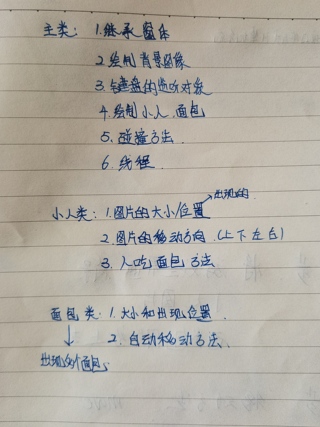 主类: 1.继承窗体
2.绘制背景图像
3.键盘的监听对象
4.绘制小人.面包
5.碰撞方法.
6.线程.
出现的
小人类: 1.图片的大小/位置
2.图片的移动方向.(上下左右)
3.人吃面包方法
面包类: 1.大小和出现位置.
2.自动移动方法.
出现的个面包.